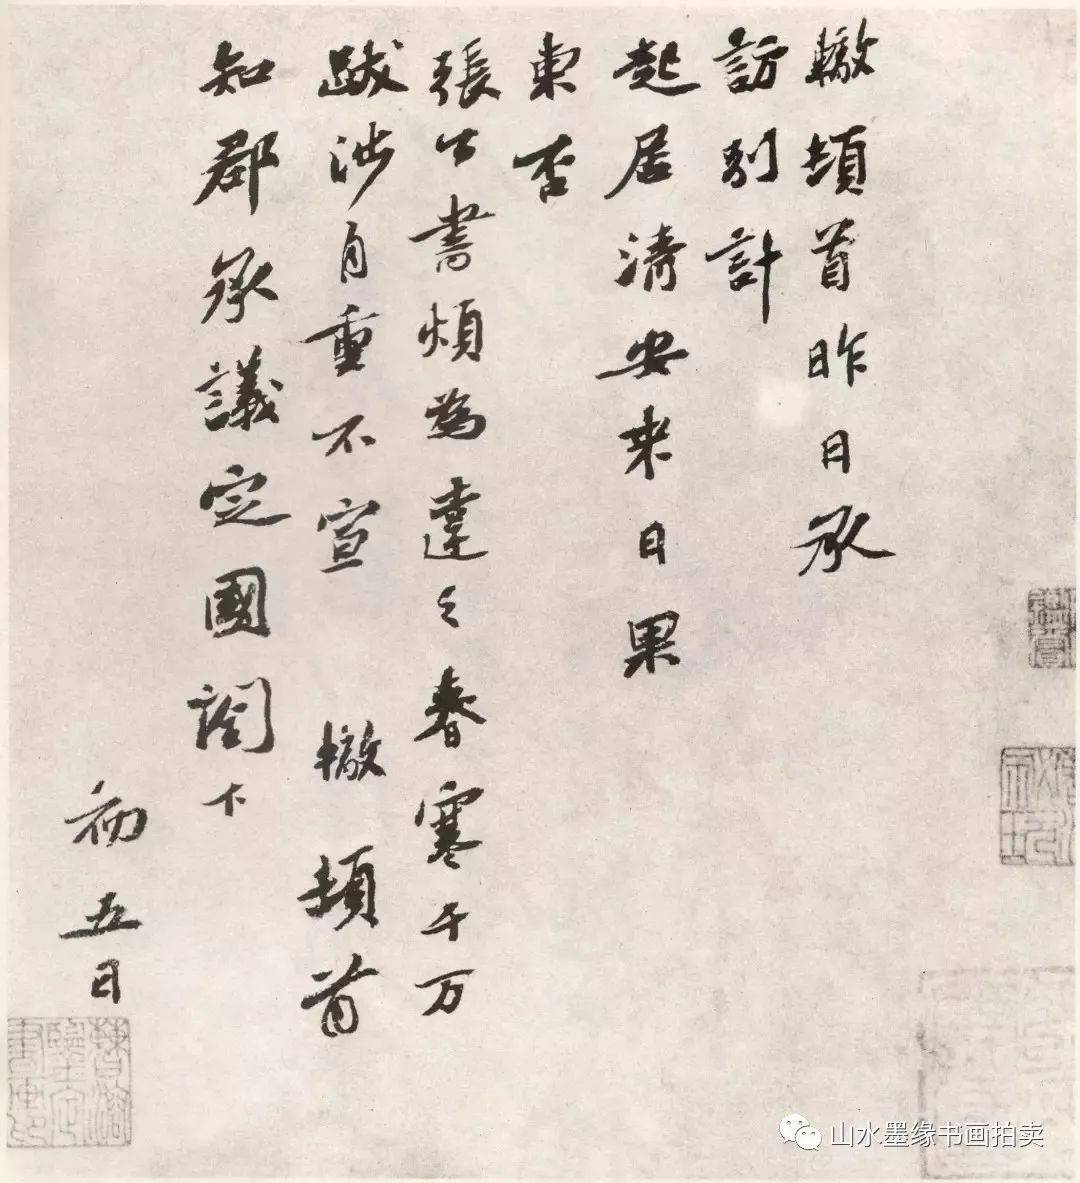 轍頓首昨日承
訪別計
起居清安来日果
東否
張公書煩為達之春寒千万
跋涉自重不宣 轍頓首
知郡承議定國閤下
初五日
山水墨缘书画拍卖